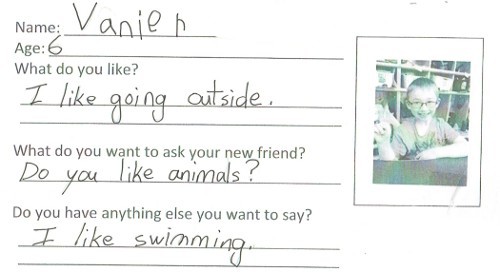 Name: Vanier
Age: 6
What do you like?
I like going outside.
What do you want to ask your new friend?
Do you like animals?
Do you have anything else you want to say?
I like swimming.